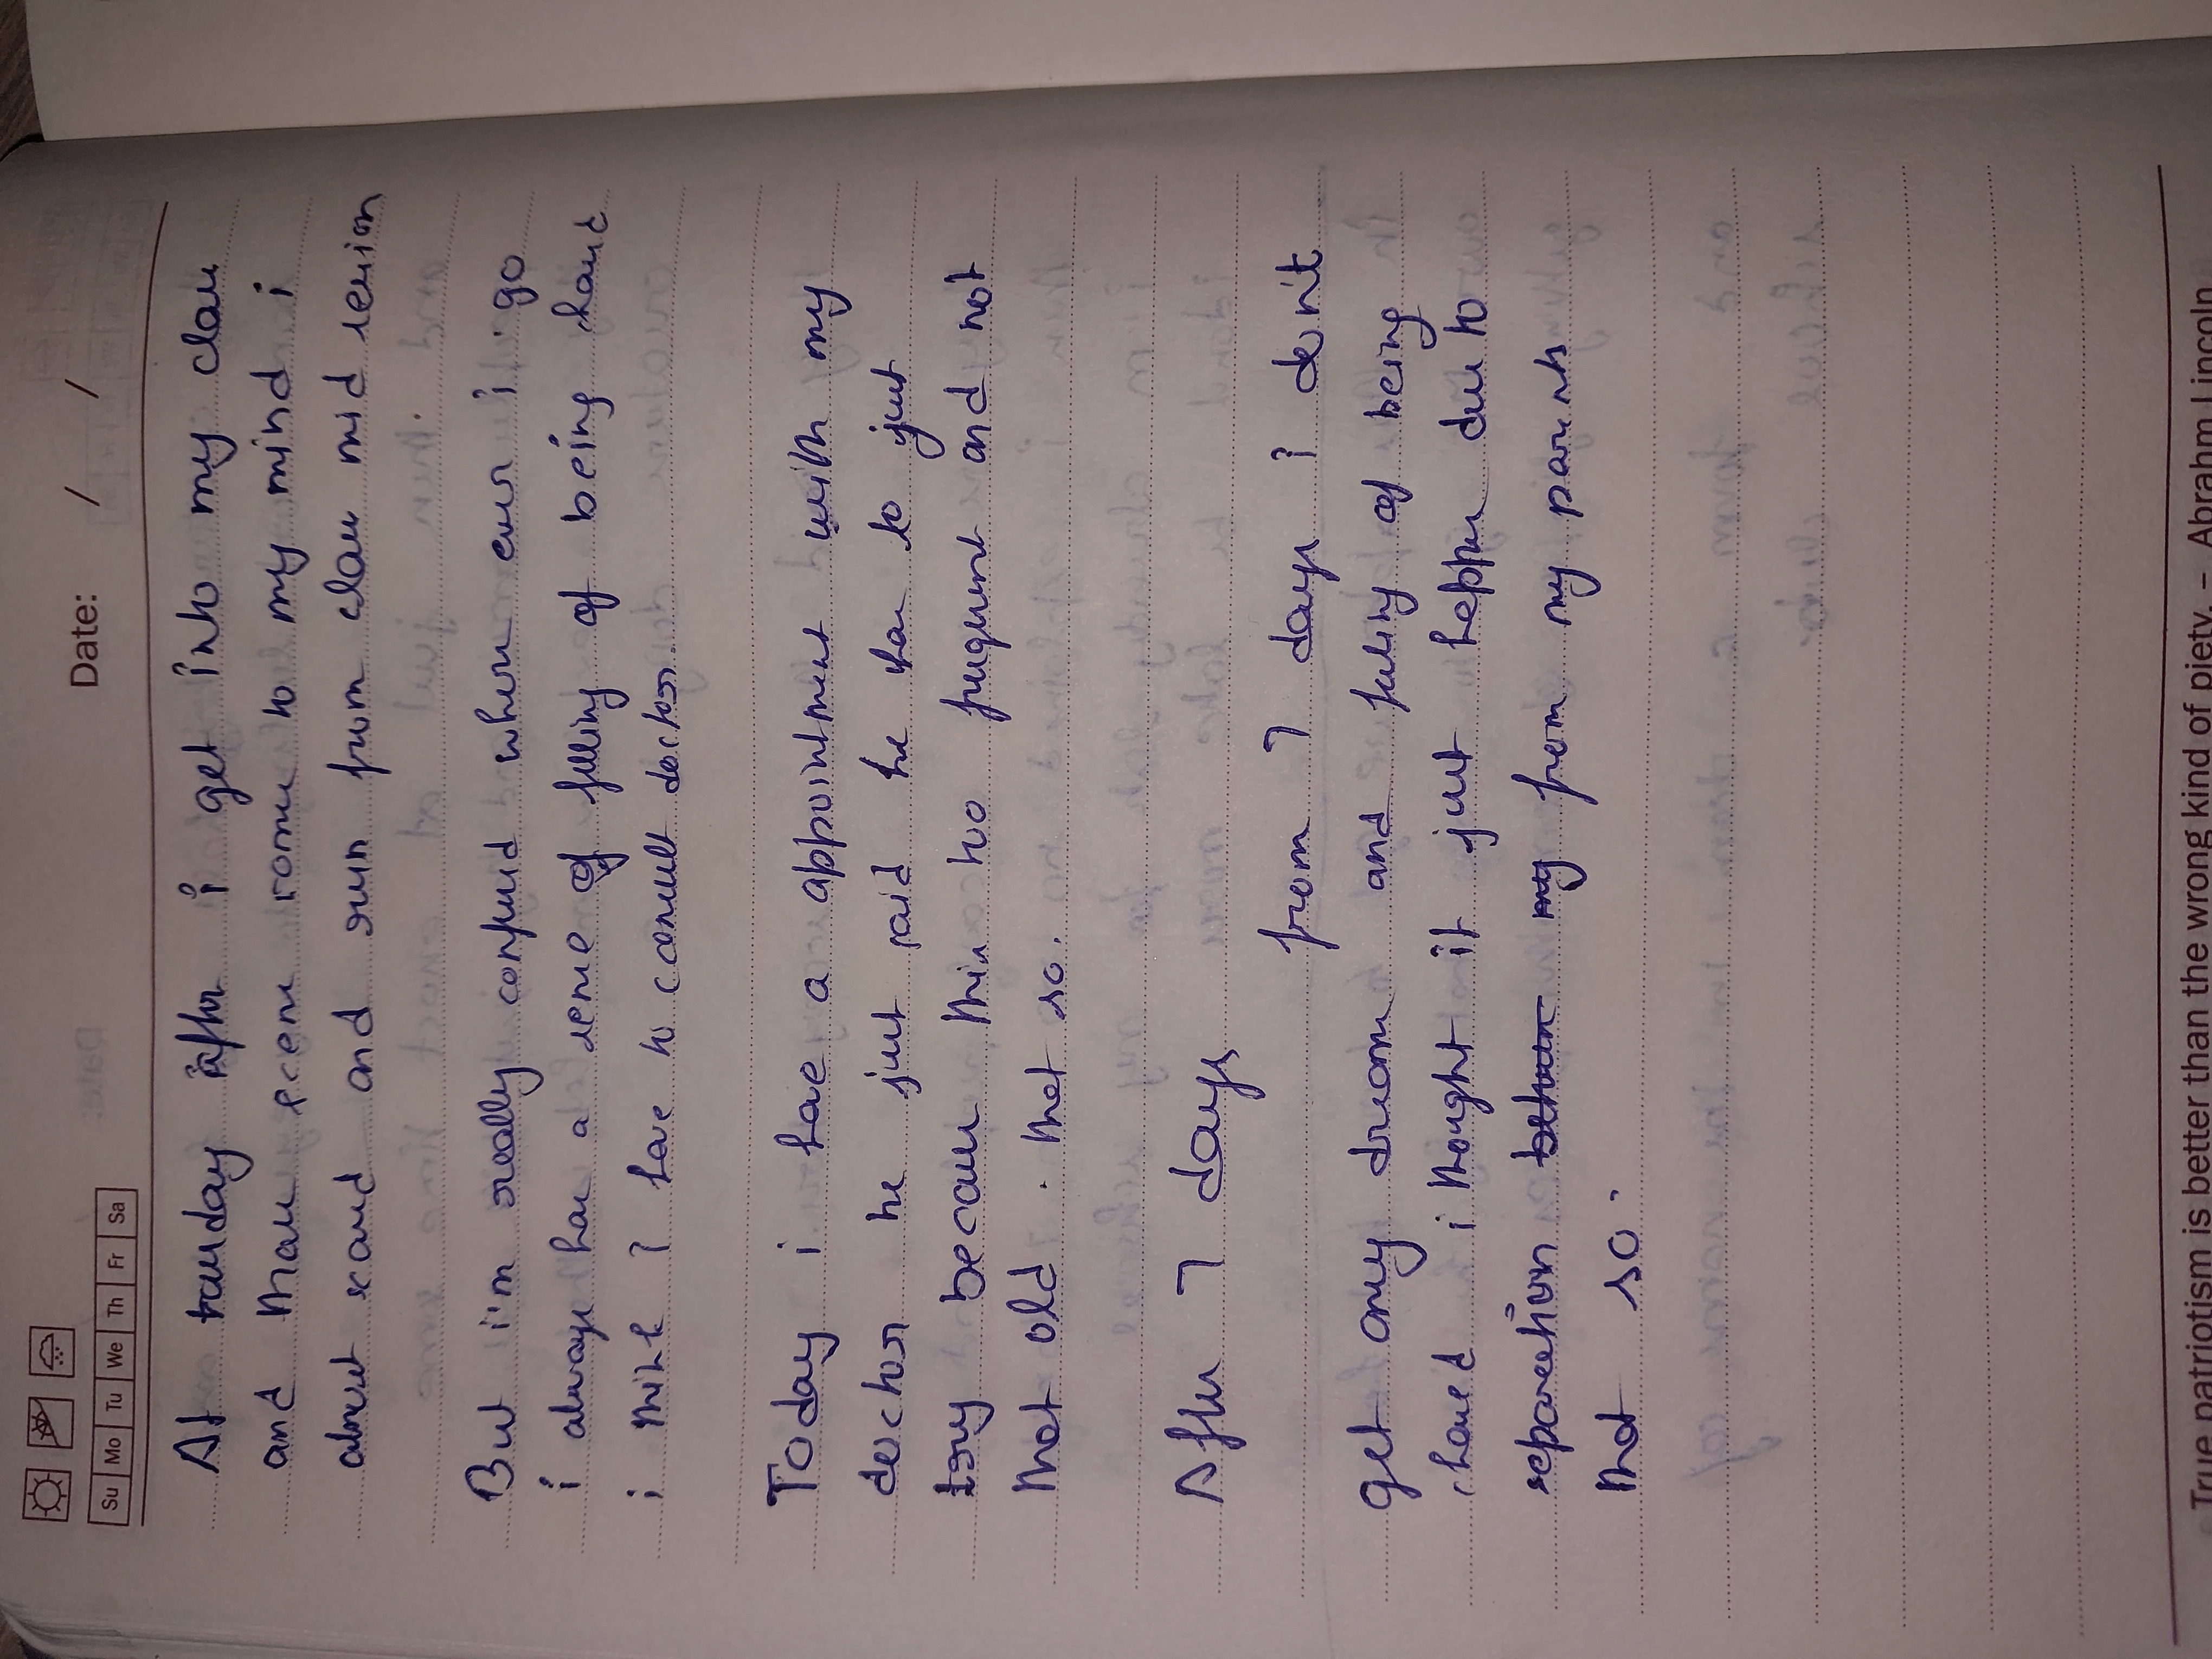 Su Mo Tu We Th Fr Sa
Date: / /
At tausday after i get into my class
and those scene come to my mind i
almost scared and run from class mid session
But i'm really confused where ever i go
i always has a sense of felling of being chased
i think I have to consult doctor.
Today i have a appointment with my
doctor he just said he has to just
try because this too frequent and not
that old . that so.
After 7 days
from 7 days i don't
get any dream and feeling of being
chased i thought it just happen due to
separation between my from my parents
that so.
True patriotism is better than the wrong kind of piety. – Abrahm Lincoln